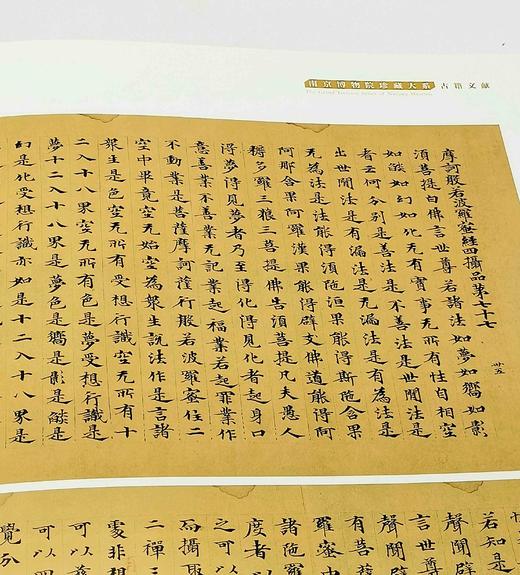 南京博物院珍藏大系 古籍文献
摩訶般若波羅蜜經四攝品第七十七
卅五
須菩提白佛言世尊若諸法如夢如嚮如影
如燄如幻如化无有實事无所有性自相空
者云何分別是善法是不善法是世間法是
出世間法是有漏法是无漏法是有為法是
无為法是法能得須陁洹果能得斯陁含果
阿那含果阿羅漢果能得辟支佛道能得阿
耨多羅三藐三菩提佛告須菩提凡夫愚人
得夢得見夢者乃至得化得見化者起身口
意善業不善業无記業起福業若起罪業作
不動業是菩薩摩訶薩行般若波羅蜜住二
空中畢竟空无始空為眾生說法作是言諸
眾生是色空无所有受想行識空无所有十
二入十八界空无所有色是夢受想行識是
夢十二入十八界是夢色是嚮是影是燄是
幻是化受想行識亦如是十二入十八界是
若知是
聲聞辟
言世尊
聲聞辟
有菩
羅蜜中
諸陁羅
度者以
之可以
而攝取
二禪三
處非想
可以
可以四
覺分